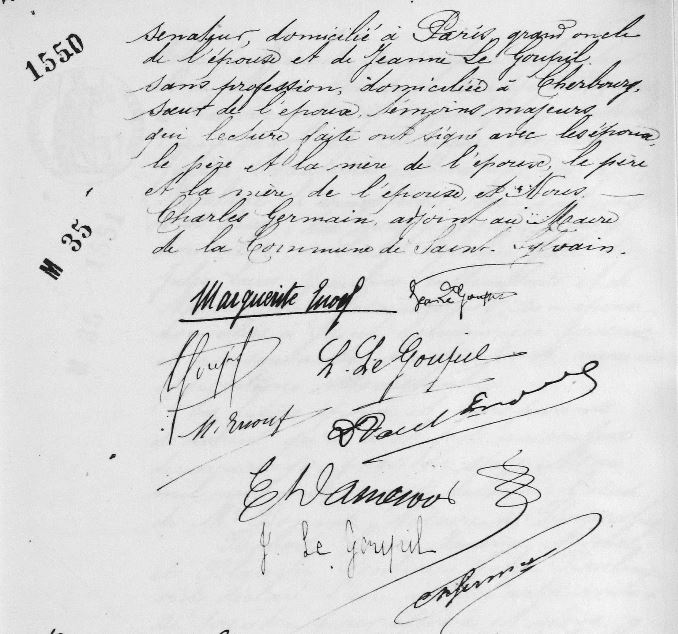 1550
M 35
senateur, domicilié à Paris, grand oncle
de l'épouse et de Jeanne Le Goupil,
sans profession, domiciliée à Cherbourg,
sœur de l'époux, témoins majeurs
qui lecture faite ont signé avec les époux,
le père et la mère de l'époux, le père
et la mère de l'épouse, et Nous, —
Charles Germain, adjoint au Maire
de la Commune de Saint-Sylvain.
Marguerite Enouf
L. Le Goupil
M. Enouf
Paul Enouf
J. Le Goupil